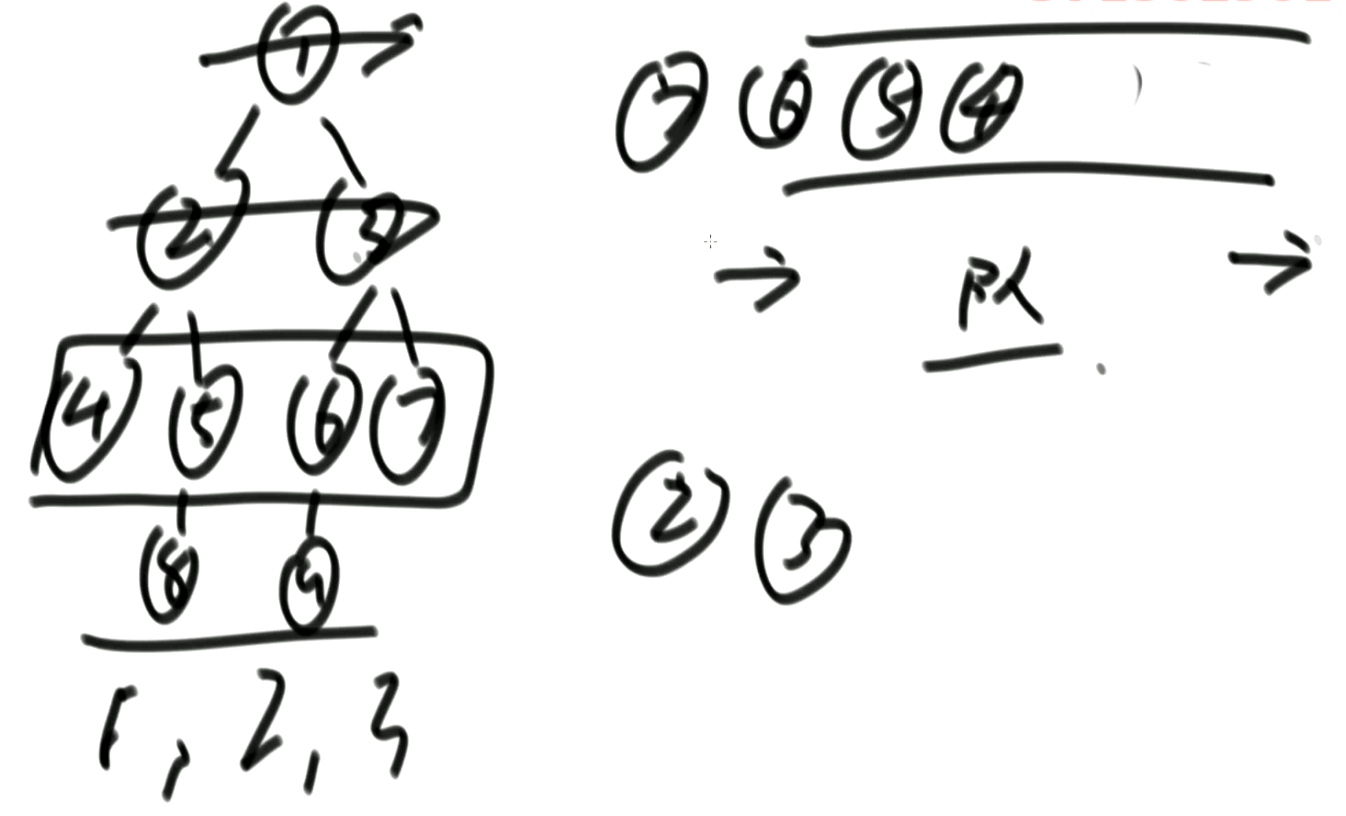 1
2 3
4 5 6 7
8 9
1, 2, 3
7 6 5 4
队
2 3